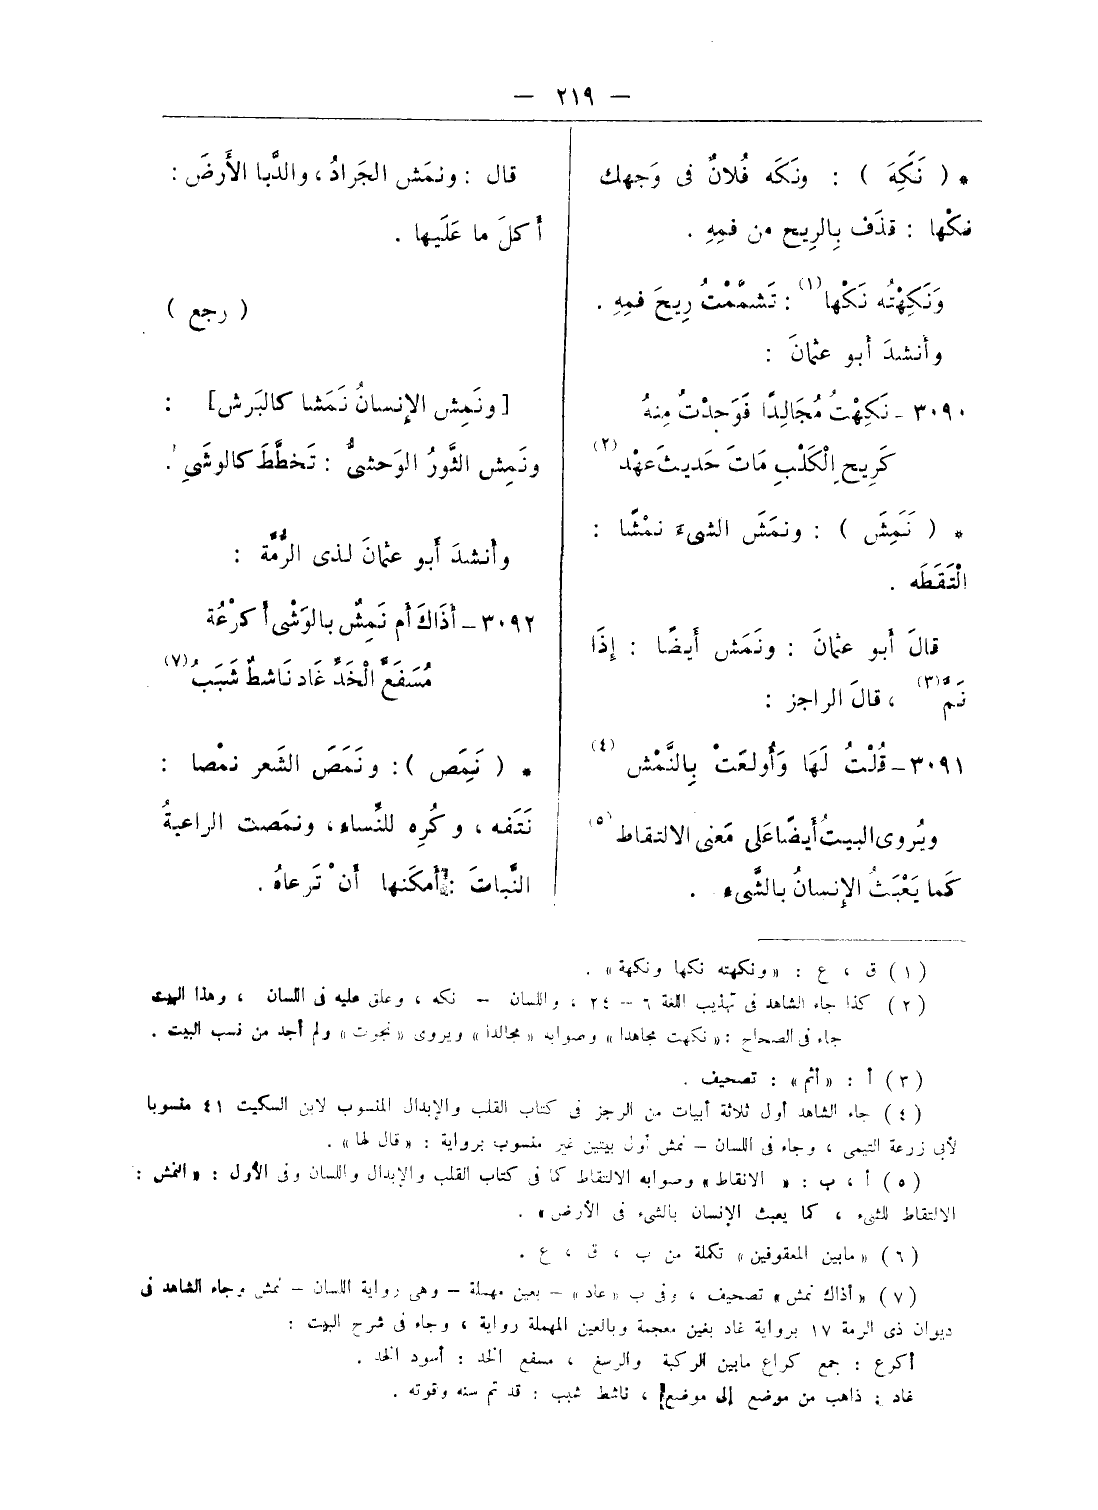 — ٢١٩ —
* ( نَكِهَ ) : ونَكَه فُلانٌ فى وَجهك
نكْها : قذَف بِالرِيح من فمِهِ .
وَنَكِهْتُه نَكْها(١) : تَشمَّمْتُ رِيحَ فمِهِ .
وأنشدَ أبو عثمانَ :
٣٠٩٠ ـ نَكِهْتُ مُجَالِدًا فَوَجدْتُ مِنهُ
كَرِيحِ الْكَلْبِ مَاتَ حَديثَ عهْد(٢)
* ( نَمِشَ ) : ونمَشَ الشىءَ نمْشًا :
الْتَقَطَه .
قالَ أبو عثمانَ : ونَمَش أيضًا : إذَا
نَمَّ(٣) ، قالَ الراجز :
٣٠٩١ ـ قُلْتُ لَهَا وَأُولعَتْ بِالنَّمْش(٤)
ويُروى البيتُ أيضًا عَلى مَعنى الالتقاط(٥)
كَما يَعْبَثُ الإنسانُ بالشَّىء .
قال : ونمَش الجَرادُ ، والدَّبا الأَرضَ :
أكلَ ما عَلَيها .
( رجع )
[ ونَمِش الإنسانُ نَمَشا كالبَرش] :
ونَمِش الثَّورُ الوَحشىُّ : تَخطَّطَ كالوشىِ .
وأنشدَ أبو عثمانَ لذى الرُّمَّة :
٣٠٩٢ ـ أذَاكَ أم نَمِشٌ بالوَشْى أكرْعُهُ
مُسَفَعَّ الْخَدَّ غَاد نَاشطٌ شَبَبُ(٧)
* ( نَمِص ) : ونَمَصَ الشَعر نمْصا :
نَتَفه ، وكُرِه للنَّساء ، ونمَصت الراعيةُ
النَّباتَ : أمكَنها أنْ تَرعاهُ .
(١) ق ، ع : «ونكهته نكها ونكهة» .
(٢) كذا جاء الشاهد فى تهذيب اللغة ٦ – ٢٤ ، واللسان – نكه ، وعلق عليه فى اللسان ، وهذا البيت
جاء فى الصحاح : «نكهت مجاهدا» وصوابه «مجالدا» ويروى «نجوت» ولم أجد من نسب البيت .
(٣) أ : «أثم» : تصحيف .
(٤) جاء الشاهد أول ثلاثة أبيات من الرجز فى كتاب القلب والإبدال المنسوب لابن السكيت ٤١ منسوبا
لأبى زرعة التيمى ، وجاء فى اللسان – نمش أول بيتين غير منسوب برواية : «قال لها» .
(٥) أ ، ب : « الانقاط» وصوابه الالتقاط كما فى كتاب القلب والإبدال واللسان وفى الأول : «النمش :
الالتقاط للشىء ، كما يعبث الإنسان بالشىء فى الأرض» .
(٦) «مابين المعقوفين» تكملة من ب ، ق ، ع .
(٧) «أذاك نمش» تصحيف ، وفى ب «عاد» – بعين مهملة – وهى رواية اللسان – نمش وجاء الشاهد فى
ديوان ذى الرمة ١٧ برواية غاد بغين معجمة وبالعين المهملة رواية ، وجاء فى شرح البيت :
أكرع : جمع كراع مابين الركبة والرسغ ، مسفع الخد : أسود الخد .
غاد : ذاهب من موضع إلى موضع ، ناشط شبب : قد تم سنه وقوته .